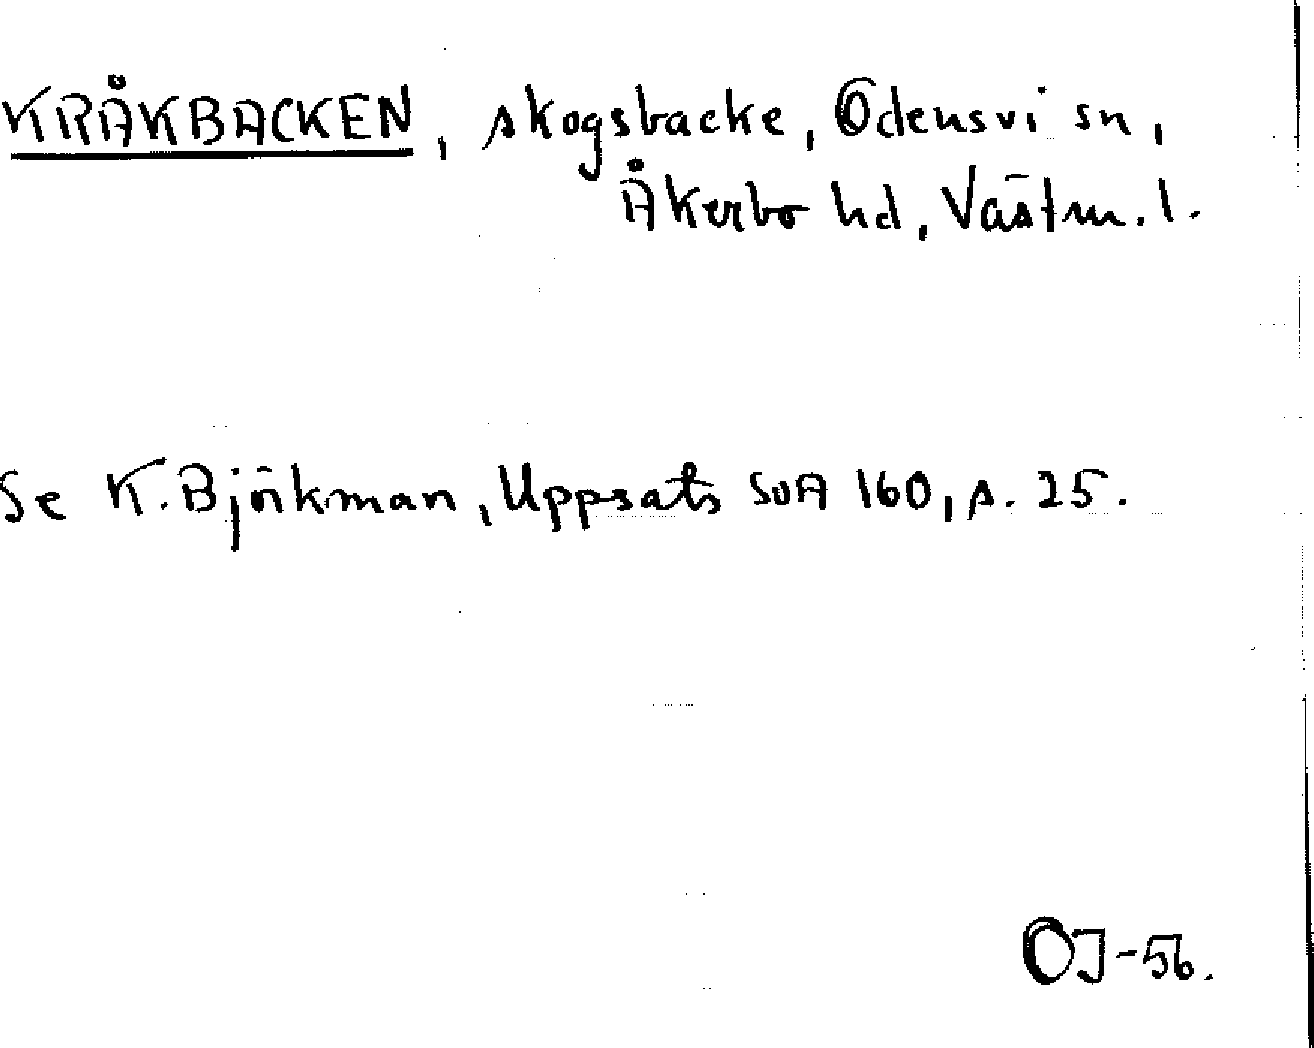 KRÅKBACKEN, skogsbacke, Odensvi sn,
Åkerbo hd, Västm. l.
Se K. Björkman, Uppsats SOA 160, s. 25.
OJ-56.